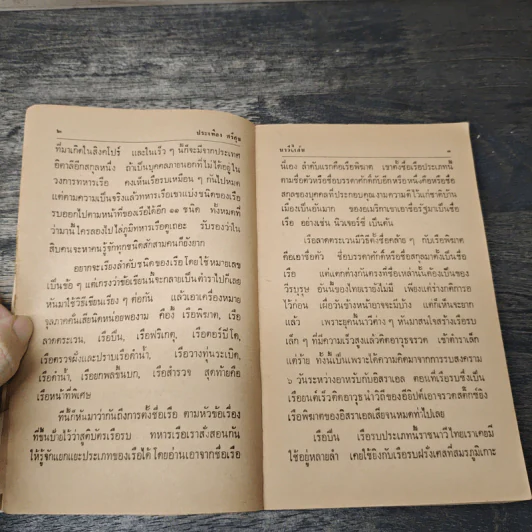 ๒ ประเทือง ศรีสุข
ที่มาเกิดในสิงคโปร์ และในเร็ว ๆ นี้ก็จะมีจากประเทศ
อิตาลีอีกสกุลหนึ่ง ถ้าเป็นบุคคลภายนอกที่ไม่ได้อยู่ใน
วงการทหารเรือ คงเห็นเรือรบเหมือน ๆ กันไปหมด
แต่ตามความเป็นจริงแล้วทหารเรือเขาแบ่งชนิดของเรือ
รบออกไปตามหน้าที่ของเรือได้อีก ๑๑ ชนิด ทั้งหมดที่
ว่ามานี้ใครลองไปไล่ภูมิทหารเรือดูเถอะ รับรองว่าใน
สิบคนจะหาคนรู้จักทุกชนิดสักสามคนก็ยังยาก
อยากจะเรียงลำดับชนิดของเรือโดยใช้หมายเลข
เป็นข้อ ๆ แต่เกรงว่าข้อเขียนนี้จะกลายเป็นตำราไปก็เลย
หันมาใช้วิธีเขียนเรียง ๆ ต่อกัน แล้วเอาเครื่องหมาย
จุลภาคคั่นเสียนิดหน่อยพองาม คือ เรือพิฆาต, เรือ
ลาดตระเวน, เรือปืน, เรือฟริเกต, เรือคอร์เวต,
เรือตรวจฝั่งและปราบเรือดำน้ำ, เรือวางทุ่นระเบิด,
เรือดำน้ำ, เรือยกพลขึ้นบก, เรือสำรวจ สุดท้ายคือ
เรือหน้าที่พิเศษ
ทีนี้ก็หันมาว่ากันถึงการตั้งชื่อเรือ ตามหัวข้อเรื่อง
ที่ขึ้นป้ายไว้ว่าสูติบัตรเรือรบ ทหารเรือเราสั่งสอนกัน
ให้รู้จักแยกแยะประเภทของเรือได้ โดยอ่านเอาจากชื่อเรือ
นาวีใกล้ชิด ๓
นี่เอง ลำดับแรกคือเรือพิฆาต เขาตั้งชื่อเรือประเภทนี้
ตามชื่อตัวหรือชื่อบรรดาศักดิ์กับอีกหรือหนึ่งคือหรือชื่อ
สกุลของบุคคลที่ประกอบคุณงามความดีไว้แก่ชาติบ้าน
เมืองเป็นอันมาก ของอเมริกาเขาเอาชื่อรัฐมาเป็นชื่อ
เรือ อย่างเช่น นิวเจอร์ซี่ เป็นต้น
เรือลาดตระเวนมีวิธีตั้งชื่อคล้าย ๆ กับเรือพิฆาต
คือเอาชื่อตัว ชื่อบรรดาศักดิ์หรือชื่อสกุลมาตั้งเป็นชื่อ
เรือ แต่แตกต่างกันตรงที่ชื่อเหล่านั้นต้องเป็นของ
วีรบุรุษ อันนี้ของไทยเรายังไม่มี เพียงแต่ร่างกติการอ
ไว้ก่อน เผื่อวันข้างหน้าอาจจะมีบ้าง แต่ก็เห็นจะยาก
แล้ว เพราะยุคนี้นาวีต่าง ๆ หันมาสนใจสร้างเรือรบ
เล็ก ๆ ที่มีความเร็วสูงแล้วติดอาวุธจรวด เข้าตำราเล็ก
แต่ร้าย ทั้งนี้เป็นเพราะได้ความคิดมาจากการรบสงคราม
๖ วันระหว่างอาหรับกับอิสราเอล ตอนที่เรือรบซึ่งเป็น
เรือยนต์เร็วติดอาวุธนำวิถีของอียิปต์เอาจรวดสติ๊กซ์ยิง
เรือพิฆาตของอิสราเอลเสียจนหมดท่าไปเลย
เรือปืน เรือรบประเภทนี้ราชนาวีไทยเราเคยมี
ใช้อยู่หลายลำ เคยใช้ยิงกับเรือรบฝรั่งเศสที่สมรภูมิเกาะ